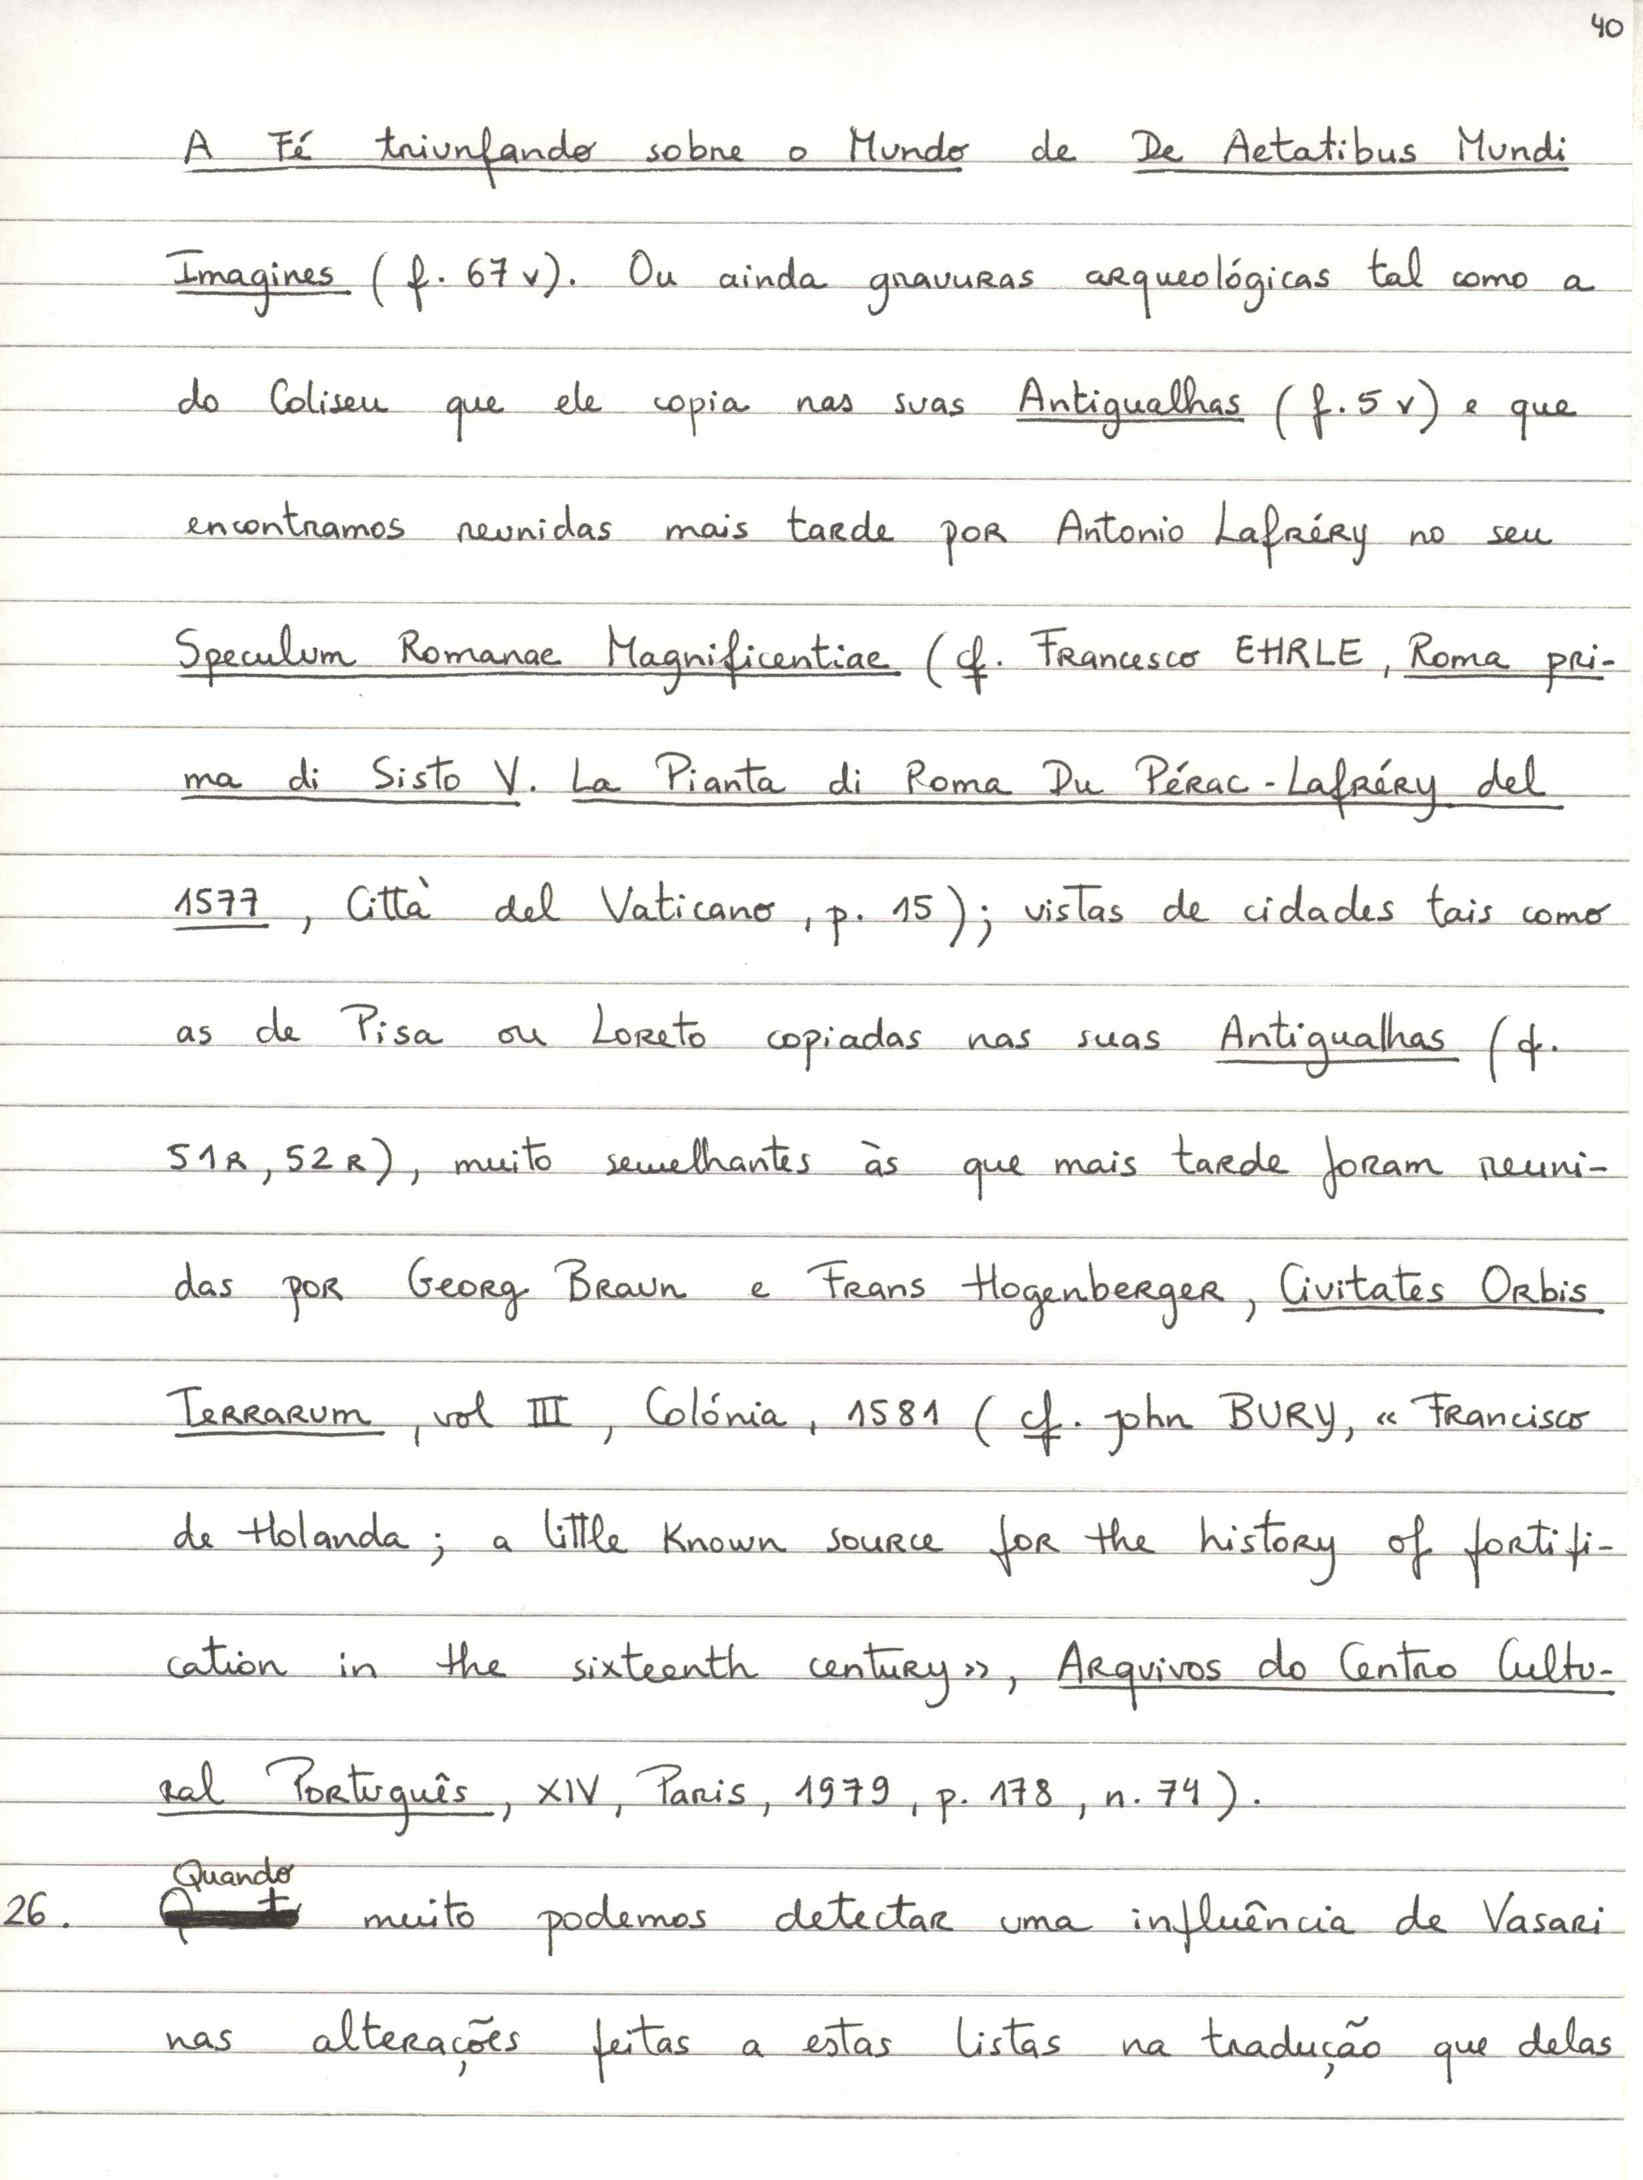 40
A Fé triunfando sobre o Mundo de De Aetatibus Mundi
Imagines (f. 67 v). Ou ainda gravuras arqueológicas tal como a
do Coliseu que ele copia nas suas Antigualhas (f. 5 v) e que
encontramos reunidas mais tarde por Antonio Lafréry no seu
Speculum Romanae Magnificentiae (cf. Francesco EHRLE, Roma pri-
ma di Sisto V. La Pianta di Roma Du Pérac-Lafréry del
1577, Città del Vaticano, p. 15); vistas de cidades tais como
as de Pisa ou Loreto copiadas nas suas Antigualhas (f.
51R, 52R), muito semelhantes às que mais tarde foram reuni-
das por Georg Braun e Frans Hogenberger, Civitates Orbis
Terrarum, vol III, Colónia, 1581 (cf. john BURY, « Francisco
de Holanda; a little Known source for the history of fortifi-
cation in the sixteenth century», Arquivos do Centro Cultu-
ral Português, XIV, Paris, 1979, p. 178, n. 74).
Quando
26. muito podemos detectar uma influência de Vasari
nas alterações feitas a estas listas na tradução que delas